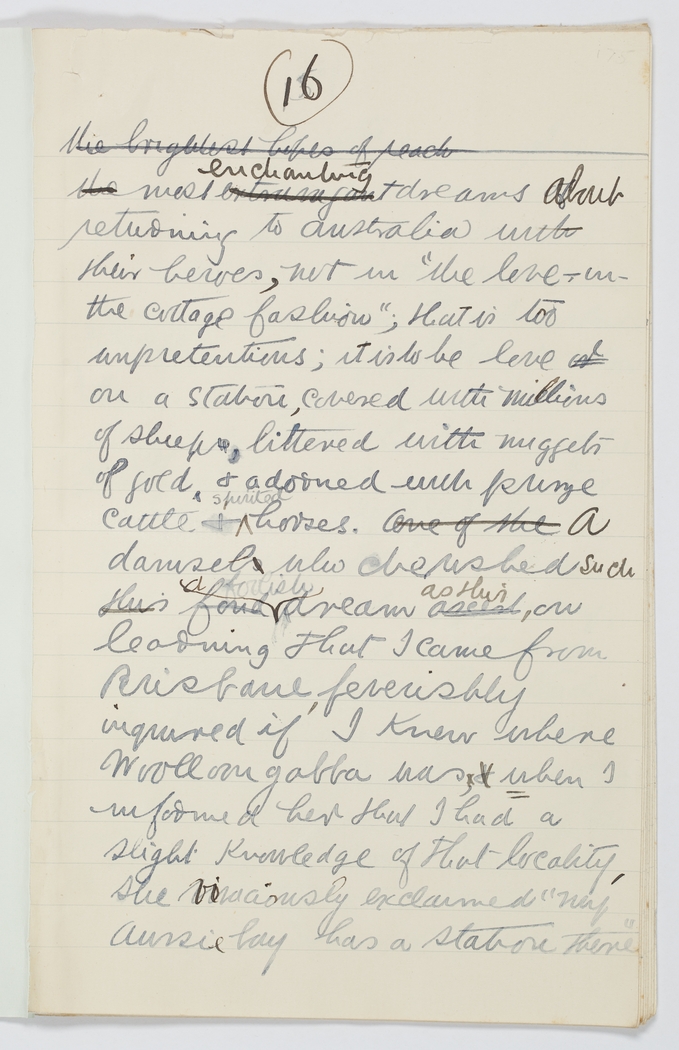 16
175
the brightest hopes of reach
enchanting
the most extravagant dreams about
returning to Australia with
their heroes, not in "the love-in-
the cottage fashion"; that is too
unpretentious; it is to be love
on a station, covered with millions
of sheep, littered with nuggets
of gold, & adorned with prize
spirited
cattle & horses. One of the A
damsel who cherished such
a foolish as this
this fond dream, on
learning that I came from
Brisbane, feverishly
inquired if I knew where
Woolloongabba was, & when I
informed her that I had a
slight knowledge of that locality,
she vivaciously exclaimed "my
Aussie boy has a station there"